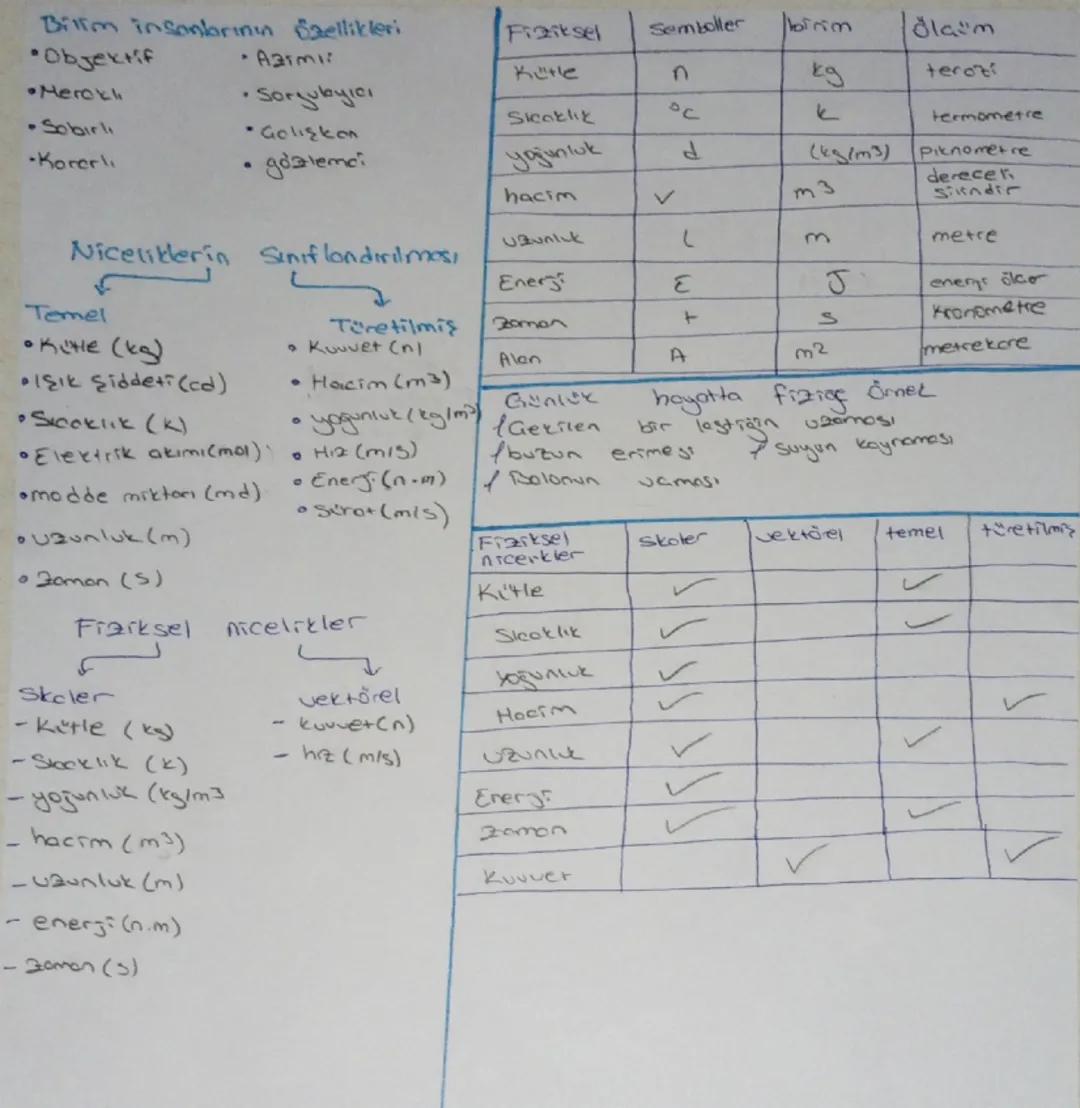 Bilim insanlarının özellikleri
• Objektif • Azimli
• Meraklı • Sorgulayıcı
• Sabırlı • Çalışkan
• Kararlı • gözlemci
Niceliklerin Sınıflandırılması
Temel
• Kütle (kg)
• Işık Şiddeti (cd)
• Sıcaklık (k)
• Elektrik akımı (mol)
• madde miktarı (md)
• uzunluk (m)
• Zaman (s)
Türetilmiş
• Kuvvet (n)
• Hacim (m³)
• yoğunluk (kg/m³)
• Hız (m/s)
• Enerji (n.m)
• Sürat (m/s)
Fiziksel nicelikler
Skaler
- Kütle (kg)
- Sıcaklık (k)
- yoğunluk (kg/m3
- hacim (m³)
- uzunluk (m)
- enerji (n.m)
- zaman (s)
vektörel
- kuvvet (n)
- hız (m/s)
Fiziksel Semboller birim Ölçüm
Kütle n kg terazi
Sıcaklık °C k termometre
yoğunluk d (kg/m3) piknometre
hacim v m3 dereceli silindir
uzunluk l m metre
Enerji E J enerji ölçer
zaman t s Kronometre
Alan A m2 metrekare
Günlük hayatta fiziğe Örnek
/ Gerilen bir lastiğin uzaması
/ buzun erimesi / suyun kaynaması
/ Balonun
Fiziksel nicelikler skaler vektörel temel türetilmiş
Kütle ✓ ✓
Sıcaklık ✓ ✓
yoğunluk ✓
Hacim ✓ ✓
uzunluk ✓ ✓
Enerji ✓
zaman ✓ ✓
Kuvvet ✓ ✓